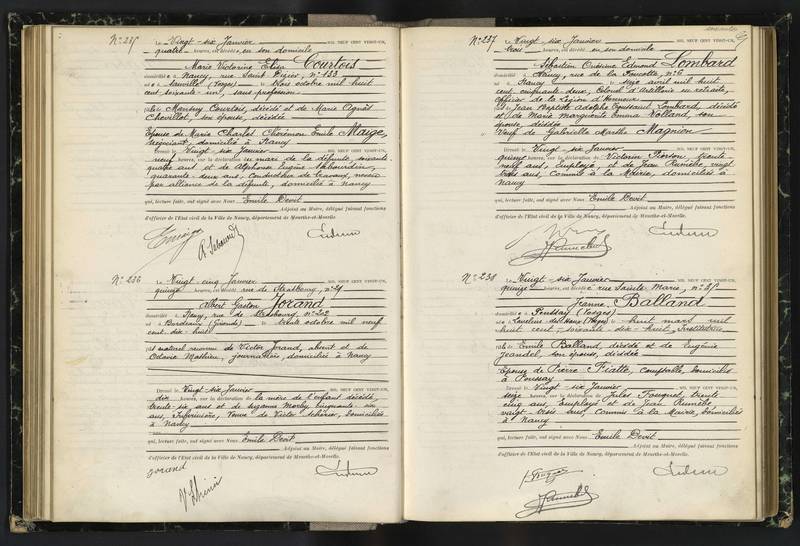 N° 235 Le Vingt-six Janvier MIL NEUF CENT VINGT-UN,
quatre heures, est décédée en son domicile
Marie Victorine Elisa Courtois
domiciliée à Nancy, rue Saint Dizier, n° 133
née à (Vosges) le trois octobre mil huit
cent soixante-un, sans profession
fille de Courtois, décédé et de Marie Agnès
Chevillot, son épouse, décédée
Epouse de Marie Charles Emile Maige,
négociant, domicilié à Nancy
Dressé le Vingt-six Janvier MIL NEUF CENT VINGT-UN,
neuf heures, sur la déclaration du mari de la défunte, soixante
quatre ans et de Alphonse Eugène
quarante-deux ans, conducteur de travaux, neveu
par alliance de la défunte, domiciliés à Nancy
qui, lecture faite, ont signé avec Nous Emile Devit
Adjoint au Maire, délégué faisant fonctions
d'officier de l'Etat civil de la Ville de Nancy, département de Meurthe-et-Moselle.
N° 236 Le Vingt-cinq Janvier MIL NEUF CENT VINGT-UN,
quinze heures, est décédé rue de Strasbourg, n°
Albert Gaston Jorand
domicilié à Nancy, rue de Strasbourg, n° 202
né à Bordeaux (Gironde) le trois octobre mil neuf
cent dix-huit
fils naturel reconnu de Victor Jorand, absent et de
Octavie Mathieu, journalière, domiciliée à Nancy
Dressé le Vingt-six Janvier MIL NEUF CENT VINGT-UN,
dix heures, sur la déclaration de la mère de l'enfant décédé,
trente-six ans et de Suzanne cinquante-six
ans, Infirmière, Veuve de Victor domiciliées
à Nancy
qui, lecture faite, ont signé avec Nous Emile Devit
Adjoint au Maire, délégué faisant fonctions
d'officier de l'Etat civil de la Ville de Nancy, département de Meurthe-et-Moselle.
jorand
N° 237 Le Vingt-six Janvier MIL NEUF CENT VINGT-UN,
trois heures, est décédé en son domicile
Sébastien Edmond Lombard
domicilié à Nancy, rue de la n° 6
né à Nancy le seize avril mil huit
cent cinquante-deux, Colonel d'Artillerie en retraite,
Officier de la Légion d'Honneur
fils de Jean Baptiste Adolphe Toussaint Lombard, décédé
et de Marie Marguerite Emma Rolland, son
épouse, décédée
Veuf de Gabrielle Marthe Magnien
Dressé le Vingt-six Janvier MIL NEUF CENT VINGT-UN,
quinze heures, sur la déclaration de Victorin Pierson, trente
neuf ans, employé et de Jean Rumèbe, vingt
trois ans, Commis à la Mairie, domiciliés à
Nancy
qui, lecture faite, ont signé avec Nous Emile Devit
Adjoint au Maire, délégué faisant fonctions
d'officier de l'Etat civil de la Ville de Nancy, département de Meurthe-et-Moselle.
N° 238 Le Vingt-six Janvier MIL NEUF CENT VINGT-UN,
quinze heures, est décédée rue Sainte Marie, n°
Jeanne Balland
domiciliée à Poussay (Vosges)
née à (Vosges) le huit mars mil
huit cent soixante-dix-huit, Institutrice
fille de Emile Balland, décédé et de Eugénie
Jeandel, son épouse, décédée
Epouse de Pierre Fiatte, comptable, domicilié
à Poussay
Dressé le Vingt-six Janvier MIL NEUF CENT VINGT-UN,
seize heures, sur la déclaration de Jules Fouquet, trente
cinq ans, Employé et de Jean Rumèbe
vingt-trois ans, Commis à la Mairie, domiciliés
à Nancy
qui, lecture faite, ont signé avec Nous Emile Devit
Adjoint au Maire, délégué faisant fonctions
d'officier de l'Etat civil de la Ville de Nancy, département de Meurthe-et-Moselle.